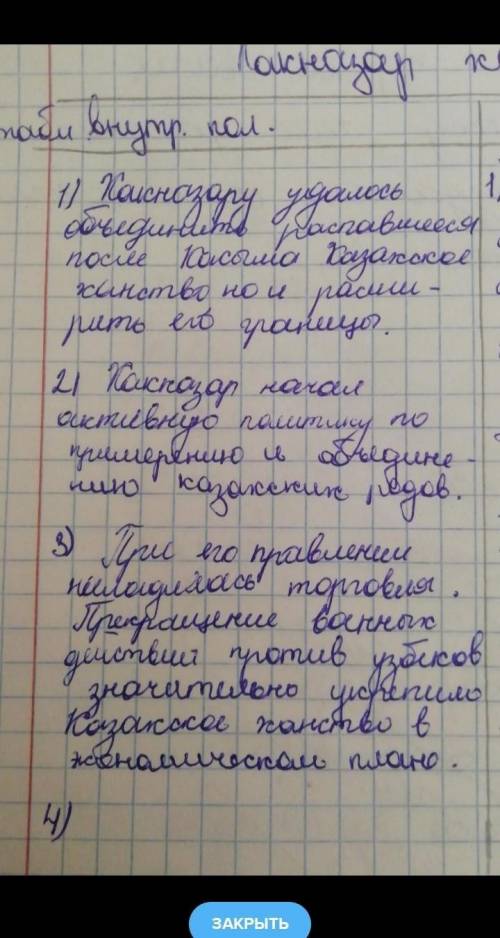 Хакназар х
табл внутр. пол.
1) Хакназару удалось
объединить распавшееся
после Касыма Казахское
ханство но и расши-
рить его границы.
2) Хакназар начал
активную политику по
примерению и объедине-
нию казахских родов.
3) При его правлении
наладилась торговля.
Прекращение военных
действий против узбеков
значительно укрепило
Казахское ханство в
экономическом плане.
4)
1)
ЗАКРЫТЬ